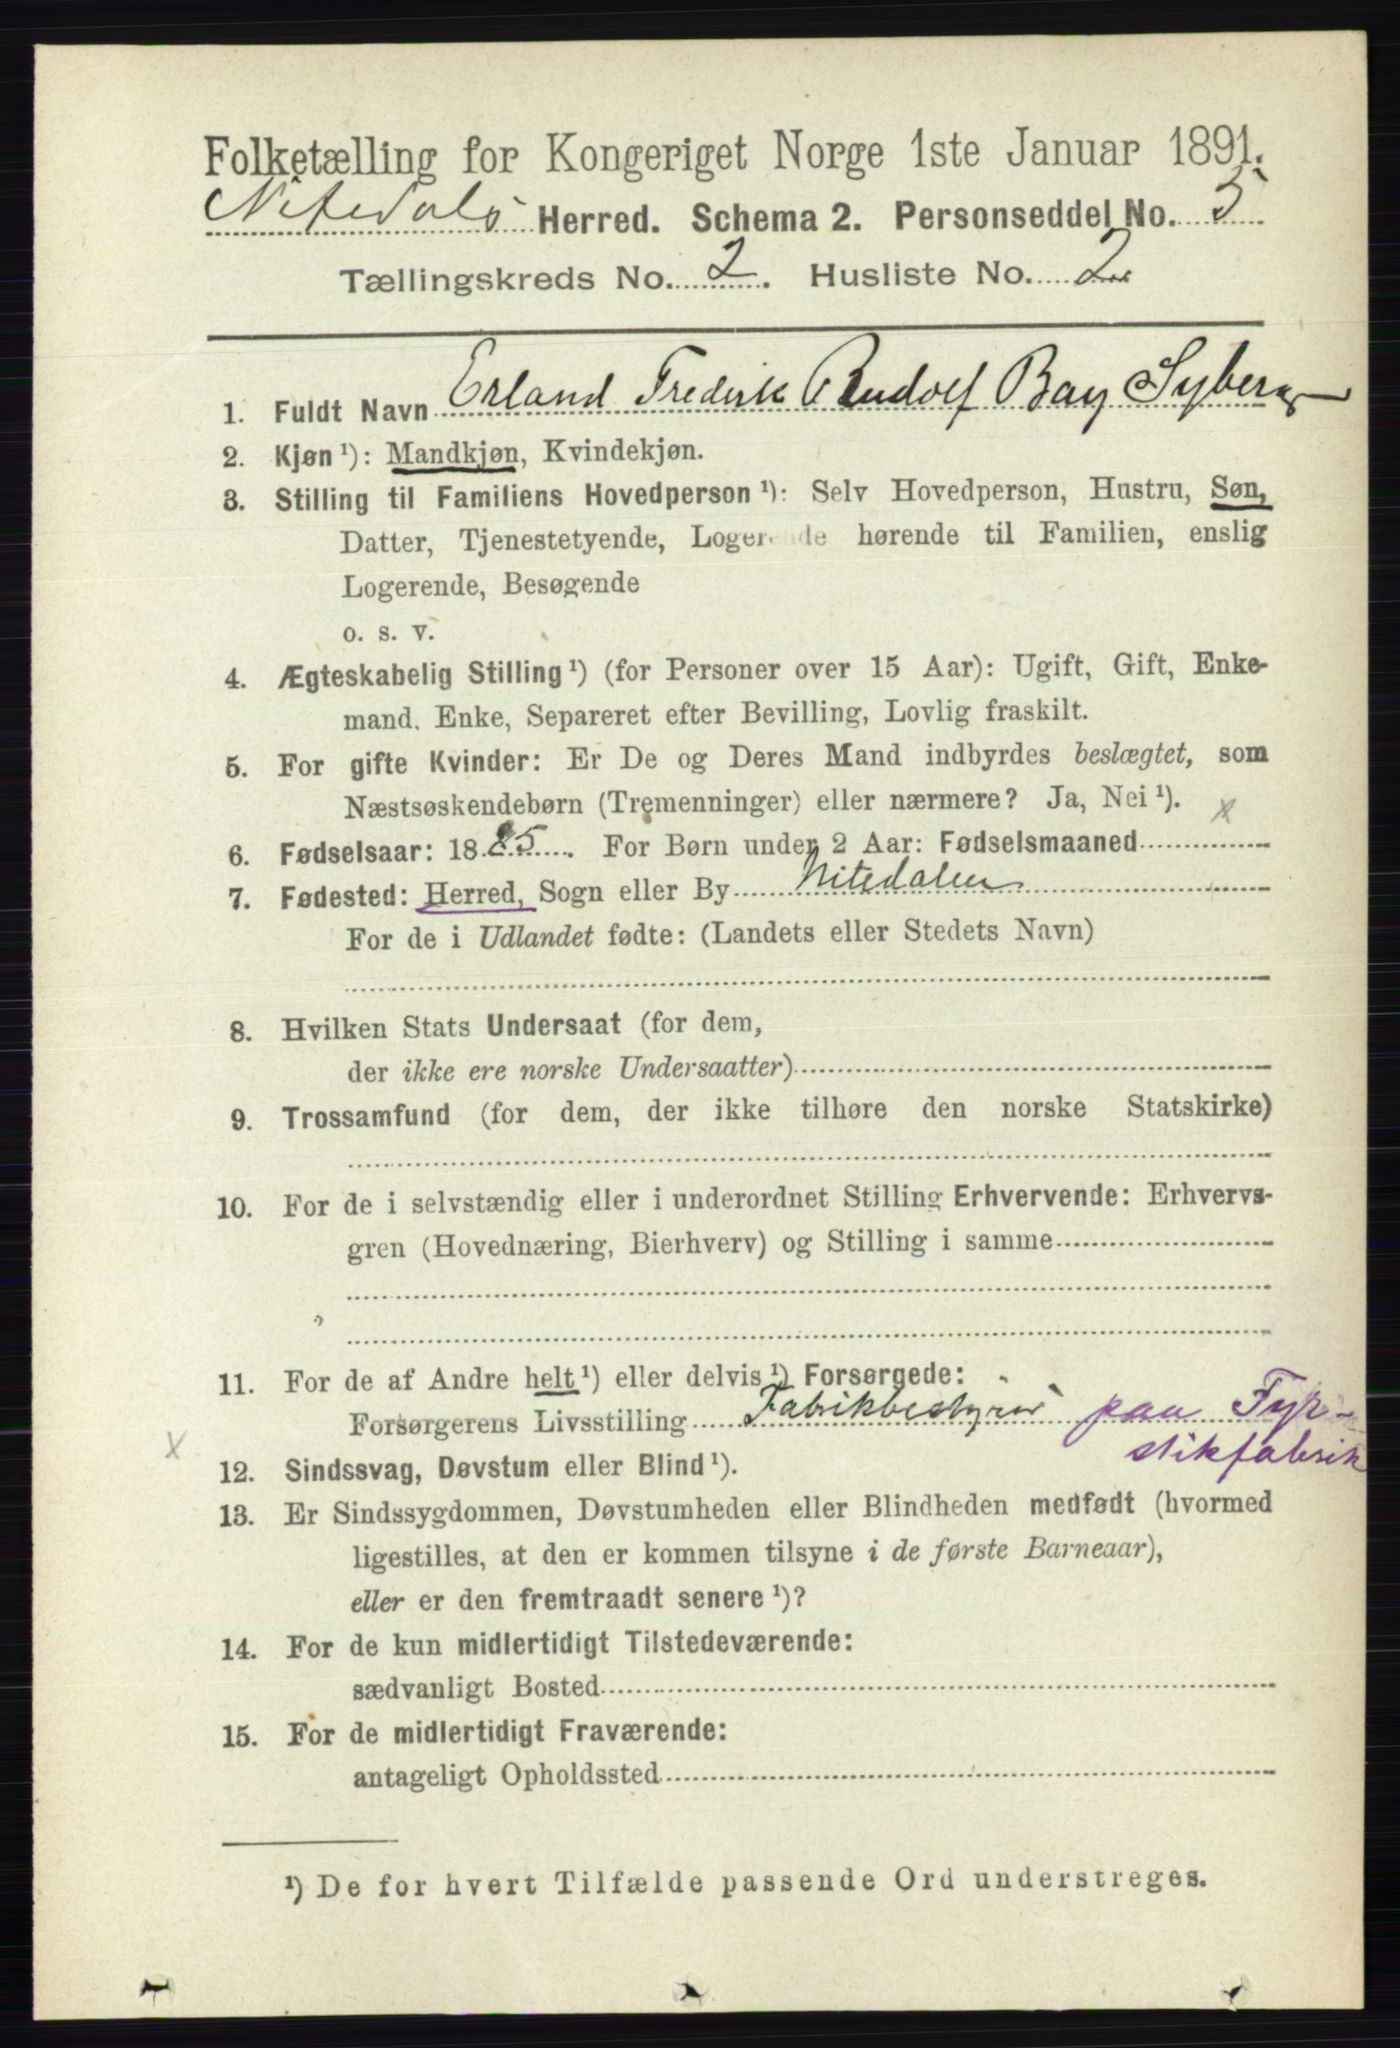 Folketælling for Kongeriget Norge 1ste Januar 1891.
Nitedals Herred. Schema 2. Personseddel No. 5
Tællingskreds No. 2. Husliste No. 2
1. Fuldt Navn Erland Frederik Rudolf Bay Syberg
2. Kjøn ¹): Mandkjøn, Kvindekjøn.
3. Stilling til Familiens Hovedperson ¹): Selv Hovedperson, Hustru, Søn,
Datter, Tjenestetyende, Logerende hørende til Familien, enslig
Logerende, Besøgende
o. s. v.
4. Ægteskabelig Stilling ¹) (for Personer over 15 Aar): Ugift, Gift, Enke-
mand, Enke, Separeret efter Bevilling, Lovlig fraskilt.
5. For gifte Kvinder: Er De og Deres Mand indbyrdes beslægtet, som
Næstsøskendebørn (Tremenninger) eller nærmere? Ja, Nei ¹). x
6. Fødselsaar: 1885. For Børn under 2 Aar: Fødselsmaaned
7. Fødested: Herred, Sogn eller By Nitedalen
For de i Udlandet fødte: (Landets eller Stedets Navn)
8. Hvilken Stats Undersaat (for dem,
der ikke ere norske Undersaatter)
9. Trossamfund (for dem, der ikke tilhøre den norske Statskirke)
10. For de i selvstændig eller i underordnet Stilling Erhvervende: Erhvervs-
gren (Hovednæring, Bierhverv) og Stilling i samme
11. For de af Andre helt ¹) eller delvis ¹) Forsørgede:
Forsørgerens Livsstilling Fabrikbestyrer paa Fyr-
x stikfabrik
12. Sindssvag, Døvstum eller Blind ¹).
13. Er Sindssygdommen, Døvstumheden eller Blindheden medfødt (hvormed
ligestilles, at den er kommen tilsyne i de første Barneaar),
eller er den fremtraadt senere ¹)?
14. For de kun midlertidigt Tilstedeværende:
sædvanligt Bosted
15. For de midlertidigt Fraværende:
antageligt Opholdssted
¹) De for hvert Tilfælde passende Ord understreges.